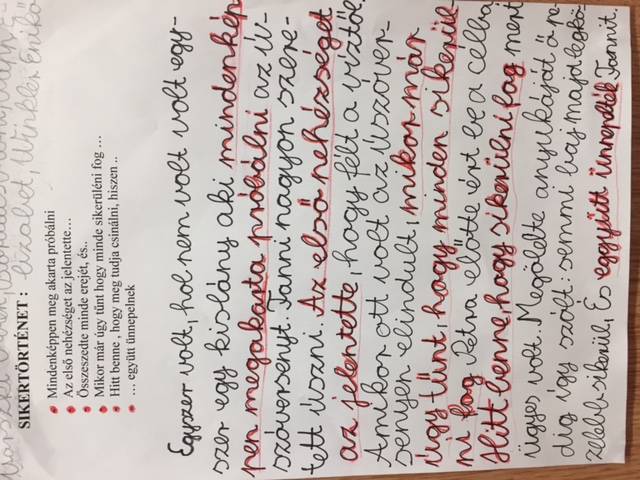 Elizabet, Winkler Enikő
SIKERTÖRTÉNET :
Mindenképpen meg akarta próbálni
Az első nehézséget az jelentette…
Összeszedte minde erejét, és..
Mikor már úgy tűnt hogy minde sikerüléni fog …
Hitt benne , hogy meg tudja csinálni, hiszen ..
… együtt ünnepelnek
Egyszer volt, hol nem volt volt egy-
szer egy kislány aki mindenkép
pen megakarta próbálni az ú-
szóversenyt. Fanni nagyon szere-
tett úszni. Az első nehézséget
az jelentette, hogy félt a víztől.
Amikor ott volt az úszóver-
senyen elindult, mikor már
úgy tűnt, hogy minden sikerül-
ni fog Petra előtte ért be a célba
Hitt benne, hogy sikerülni fog mert
ügyes volt. Megölelte anyukáját ő pe-
dig úgy szólt: semmi baj majd legkö-
zelebb sikerül. És eggyütt ünnepelték Fannit.